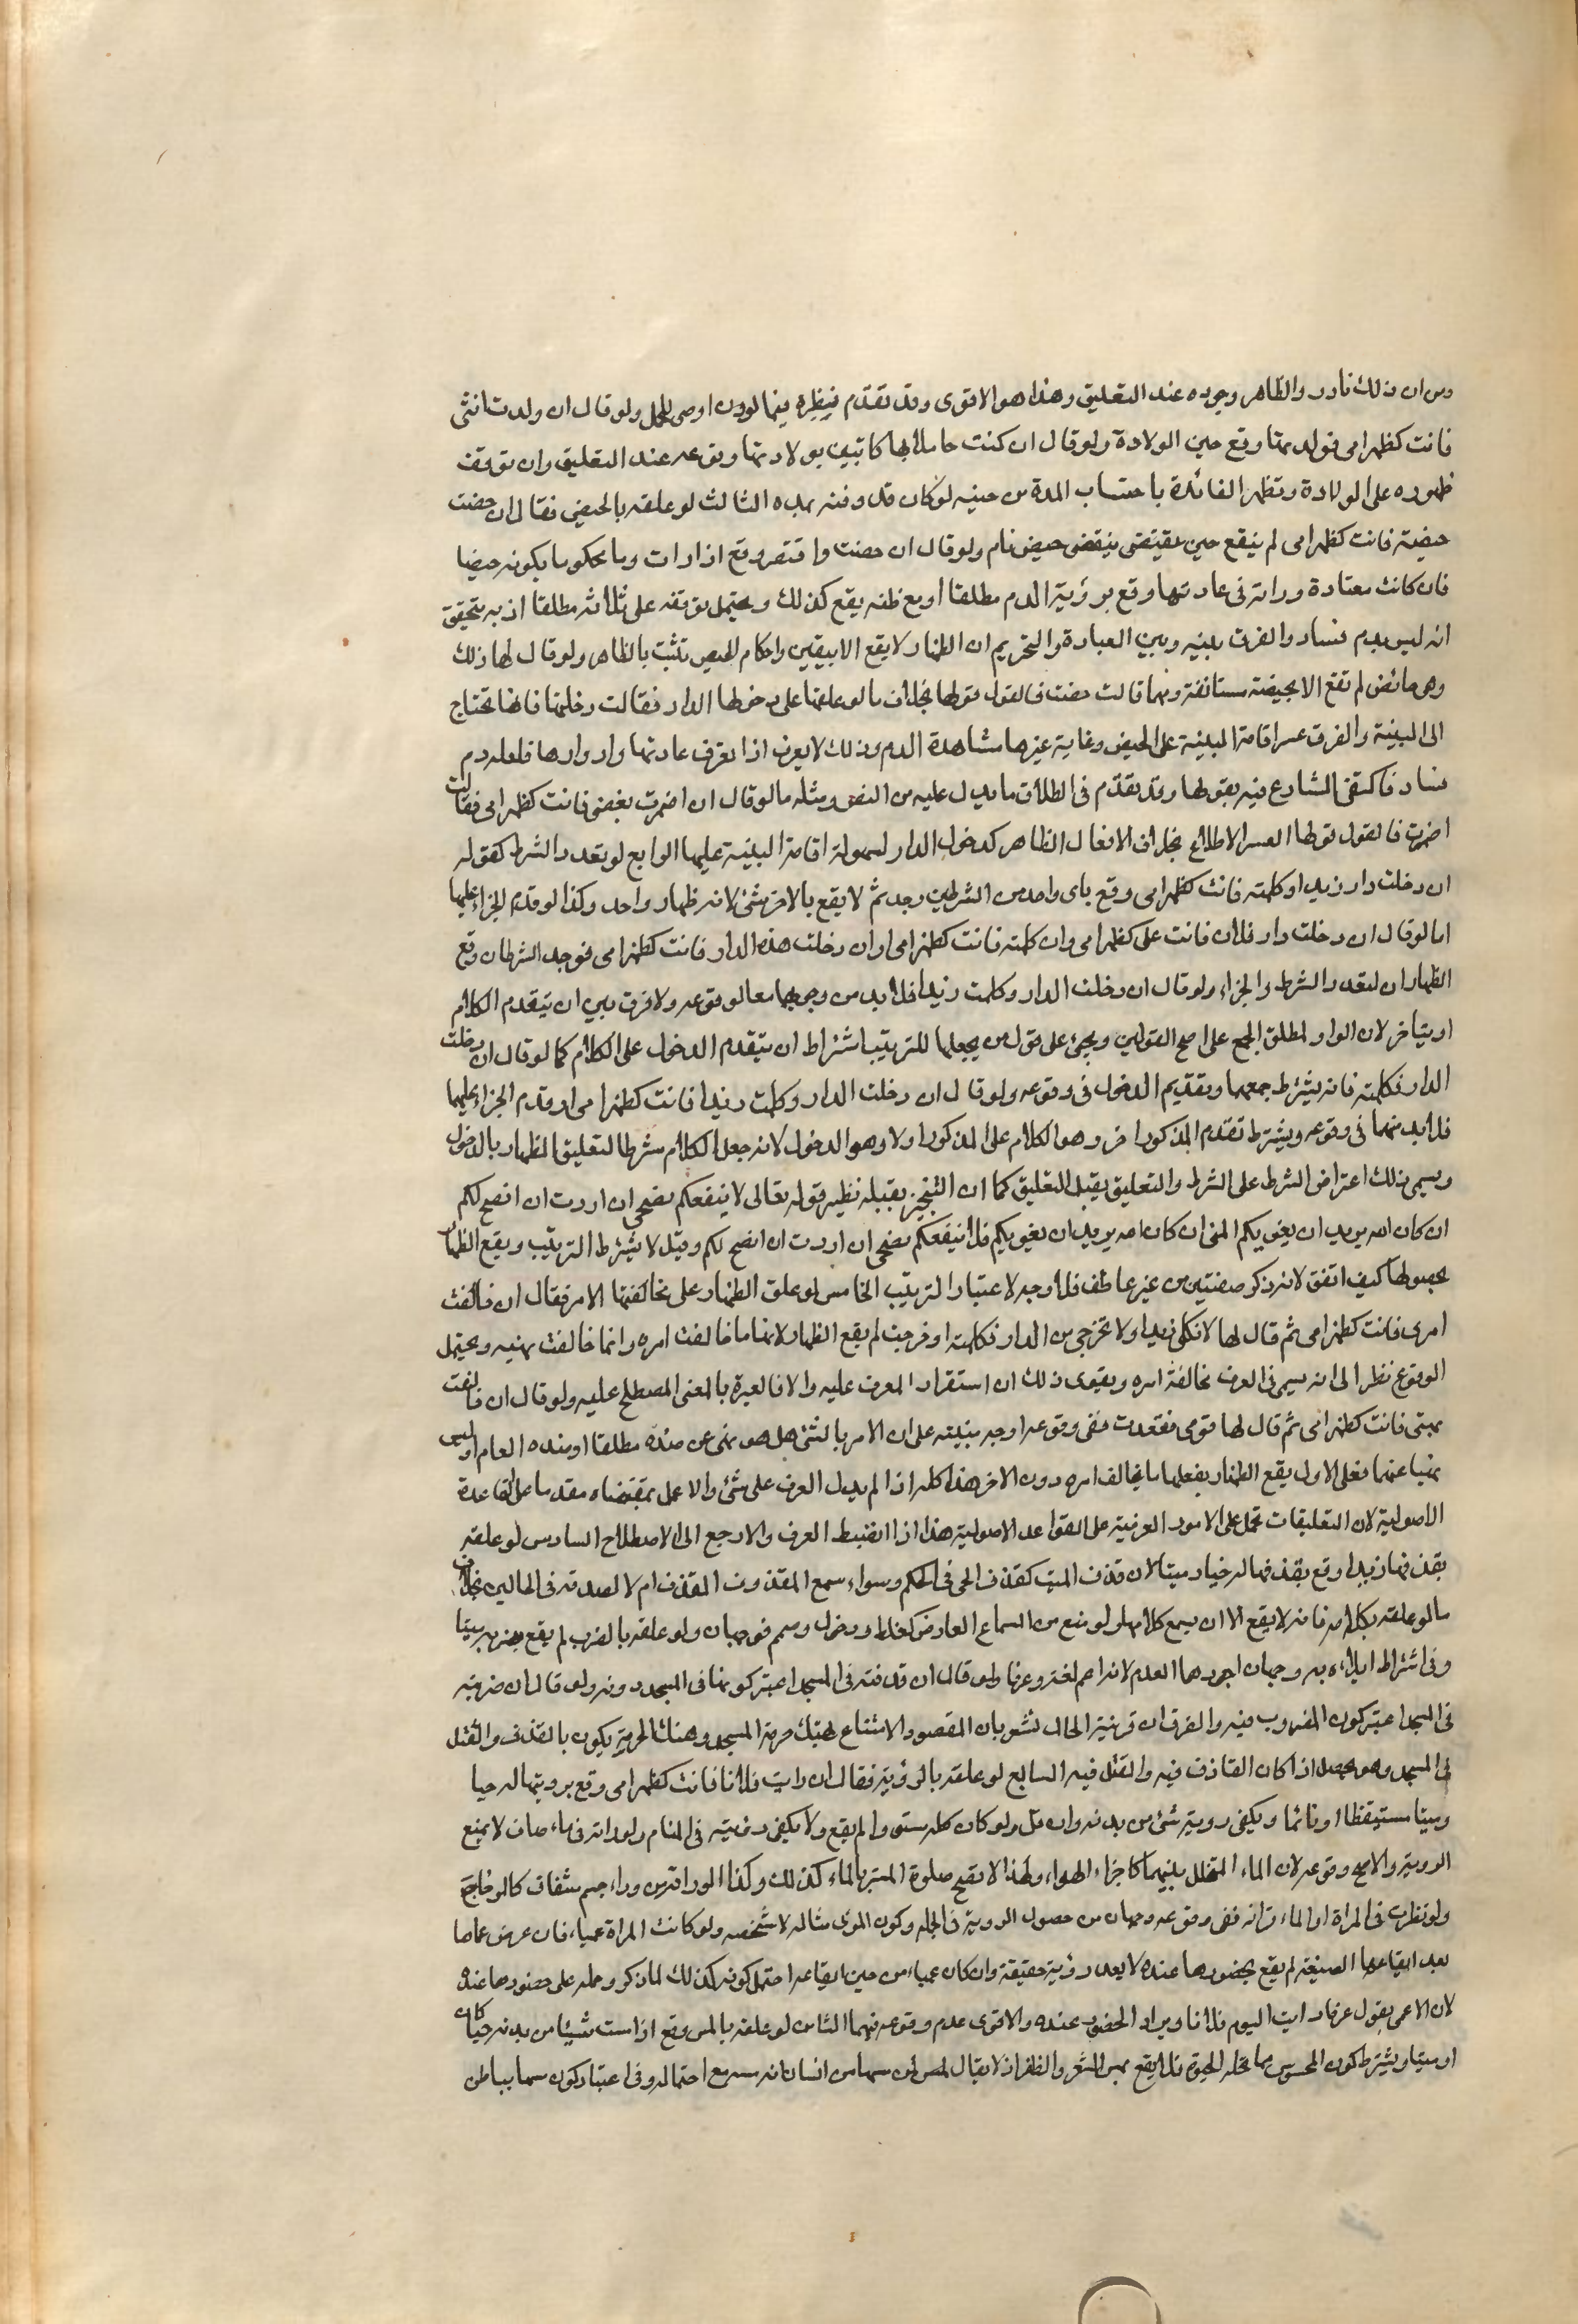 ومن ان ذلك نادر والظاهر وجوده عند التعليق وهذا هو الاقوى وقد تقدم نيظره فيما لو اوصى للحمل ولو قال ان ولدت انثى
فانت كظهر امى فولدتها وقع حين الولادة ولو قال ان كنت حاملا بها كا تبين بولادتها وقوعه عند التعليق وان توقف
ظهوره على الولادة وتظهر الفائدة باحتساب المدة من حينه لو كان قد وقته بمده الثالث لو علقه بالحيض فقال ان حضت
حيضة فانت كظهر امى لم يقع حين ينقضى حيض تام ولو قال ان حضت واقتصر وقع اذا رات دما محكوما بكونه حيضا
فان كانت معتادة وراته فى عادتها وقع برؤية الدم مطلقا او مع ظنه يقع كذلك ويحتمل توقفه على ثلاثه مطلقا اذ به يتحقق
انه ليس بدم فساد والفرق بينه وبين العبادة والتحريم ان الظهار لا يقع الا بيقين واحكام الحيض تثبت بالظاهر ولو قال لها ذلك
وهى حائض لم تقع الا بحيضة مستانفة ومهما قالت حضت فالقول قولها بخلاف ما لو علقها على دخولها الدار فقالت دخلتها فانها تحتاج
الى البينة والفرق عسر اقامة البينة على الحيض وغاية غيرها مشاهدة الدم وذلك لا يعرف اذا لم تعرف عادتها وادوارها فلعله دم
فساد فاكتفى الشارع فيه بقولها وقد تقدم فى الطلاق ما يدل عليه من النص ومثله ما لو قال ان اضمرت بغضى فانت كظهر امى فقالت
اضمرت فالقول قولها لعسر الاطلاع بخلاف الافعال الظاهر كدخول الدار لسهولة اقامة البينة عليها الرابع لو تعدد الشرط كقوله
ان دخلت دار زيد او كلمته فانت كظهر امى وقع باى واحد من الشرطين وجد ثم لا يقع بالاخر شئ لانه ظهار واحد وكذا لو قدم الجزاء عليهما
اما لو قال ان دخلت دار فلان فانت على كظهر امى وان كلمته فانت كظهر امى او ان دخلت هذه الدار فانت كظهر امى فوجد الشرطان وقع
الظهاران لتعدد الشرط والجزاء ولو قال ان دخلت الدار وكلمت زيدا فلابد من وجودهما معا لوقوعه ولا فرق بين ان يتقدم الكلام
او يتاخر لان الواو لمطلق الجمع على اصح القولين ويجئ على قول من يجعلها للترتيب اشتراط ان يتقدم الدخول على الكلام كما لو قال ان دخلت
الدار فكلمته فانه يشترط جمعهما وتقديم الدخول فى وقوعه ولو قال ان دخلت الدار وكلمت زيدا فانت كظهر امى او قدم الجزاء عليهما
فلابد منهما فى وقوعه ويشترط تقدم المذكور اخر وهو الكلام على المذكور اولا وهو الدخول لانه جعل الكلام شرطا لتعليق الظهار بالدخول
ويسمى ذلك اعتراض الشرط على الشرط والتعليق يقبل التعليق كما ان التنجيز يقبله نظير قوله تعالى لا ينفعكم نصحى ان اردت ان انصح لكم
ان كان الله يريد ان يغويكم المعنى ان كان الله يريد ان يغويكم فلا ينفعكم نصحى ان اردت ان انصح لكم وقيل لا يشترط الترتيب ويقع الظهار
بحصولها كيف اتفق لانه ذكر صفتين من غير عاطف فلا وجه لاعتبار الترتيب الخامس لو علق الظهار على مخالفتها الامر فقال ان خالفت
امرى فانت كظهر امى ثم قال لها لا تكلمى زيدا ولا تخرجى من الدار فكلمته او خرجت لم يقع الظهار لانها ما خالفت امره وانما خالفت نهيه ويحتمل
الوقوع نظرا الى انه يسمى فى العرف مخالفة امره ويقوى ذلك ان استقرار العرف عليه والا فالعبرة بالمعنى المصطلح عليه ولو قال ان خالفت
نهيى فانت كظهر امى ثم قال لها قومى فقعدت ففى وقوعه اوجه مبنية على ان الامر بالشئ هل هو نهى عن ضده مطلقا او ضده العام او ليس
نهيا عنهما فعلى الاول يقع الظهار بفعلها ما يخالف امره دون الاخر هذا كله اذا لم يدل العرف على شئ والا عمل بمقتضاه مقدما على القاعدة
الاصولية لان التعليقات تحمل على الامور العرفية على القواعد الاصولية هذا اذا انضبط العرف والا رجع الى الاصطلاح السادس لو علقه
بقذفها زيدا وقع بقذفها له حيا وميتا لان قذف الميت كقذف الحى فى الحكم وسواء سمع المقذوف القذف ام لا لصدقه فى الحالين بخلاف
ما لو علقه بكلامه فانه لا يقع الا ان يسمع كلامها ولو منع من السماع العارض كغلط وذهول وصمم فوجهان ولو علقه بالضرب لم يقع بضربه ميتا
وفى اشتراط ايلامه به وجهان اجودهما العدم لانه اعم لغة وعرفا ولو قال ان قذفته فى المسجد اعتبر كونها فى المسجد دونه ولو قال ان ضربته
فى المسجد اعتبر كون المضروب فيه والفرق ان قرينة الحال تشعر بان المقصود الامتناع لهتك حرمة المسجد وهتك الحرمة يكون بالقذف والقتل
فى المسجد وهو يحصل اذا كان القاذف فيه والقتل فيه السابع لو علقه بالرؤية فقال ان رايت فلانا فانت كظهر امى وقع برويتها له حيا
وميتا مستيقظا او نائما ويكفى روية شئ من بدنه وان قل ولو كان كله مستورا لم يقع ولا يكفى رؤيته فى المنام ولو راته فى ماء صاف لا يمنع
الروية والاصح وقوعه لان الماء المتخلل بينهما كاجزاء الهواء ولهذا لا تصح صلوة المستتر بالماء كذلك وكذا لو راته من وراء جسم شفاف كالزجاج
ولو نظرت فى المراة او الماء فراته ففى وقوعه وجهان من حصول الروية فى الجملة وكون المرئى مثاله لا شخصه ولو كانت المراة عمياء فان عرض عماها
بعد ايقاعها الصيغة لم يقع بحضورها عنده لا يعد رؤية حقيقة وان كان عمياء من حين ايقاعه احتمل كونه كذلك لما ذكر وحمله على حضورها عنده
لان الاعمى يقول عرفا رايت اليوم فلانا ويراد الحضور عنده والاقوى عدم وقوعه فيهما الثامن لو علقه بالمس وقع اذا مست شيئا من بدنه حيا كان
او ميتا ويشترط كون المحسوس مما تحله الحيوة فلا يقع بمس الشعر والظفر اذ لا يقال لمن مس سهما من انسان انه مسه مع احتماله وفى اعتبار كون مسها بباطن